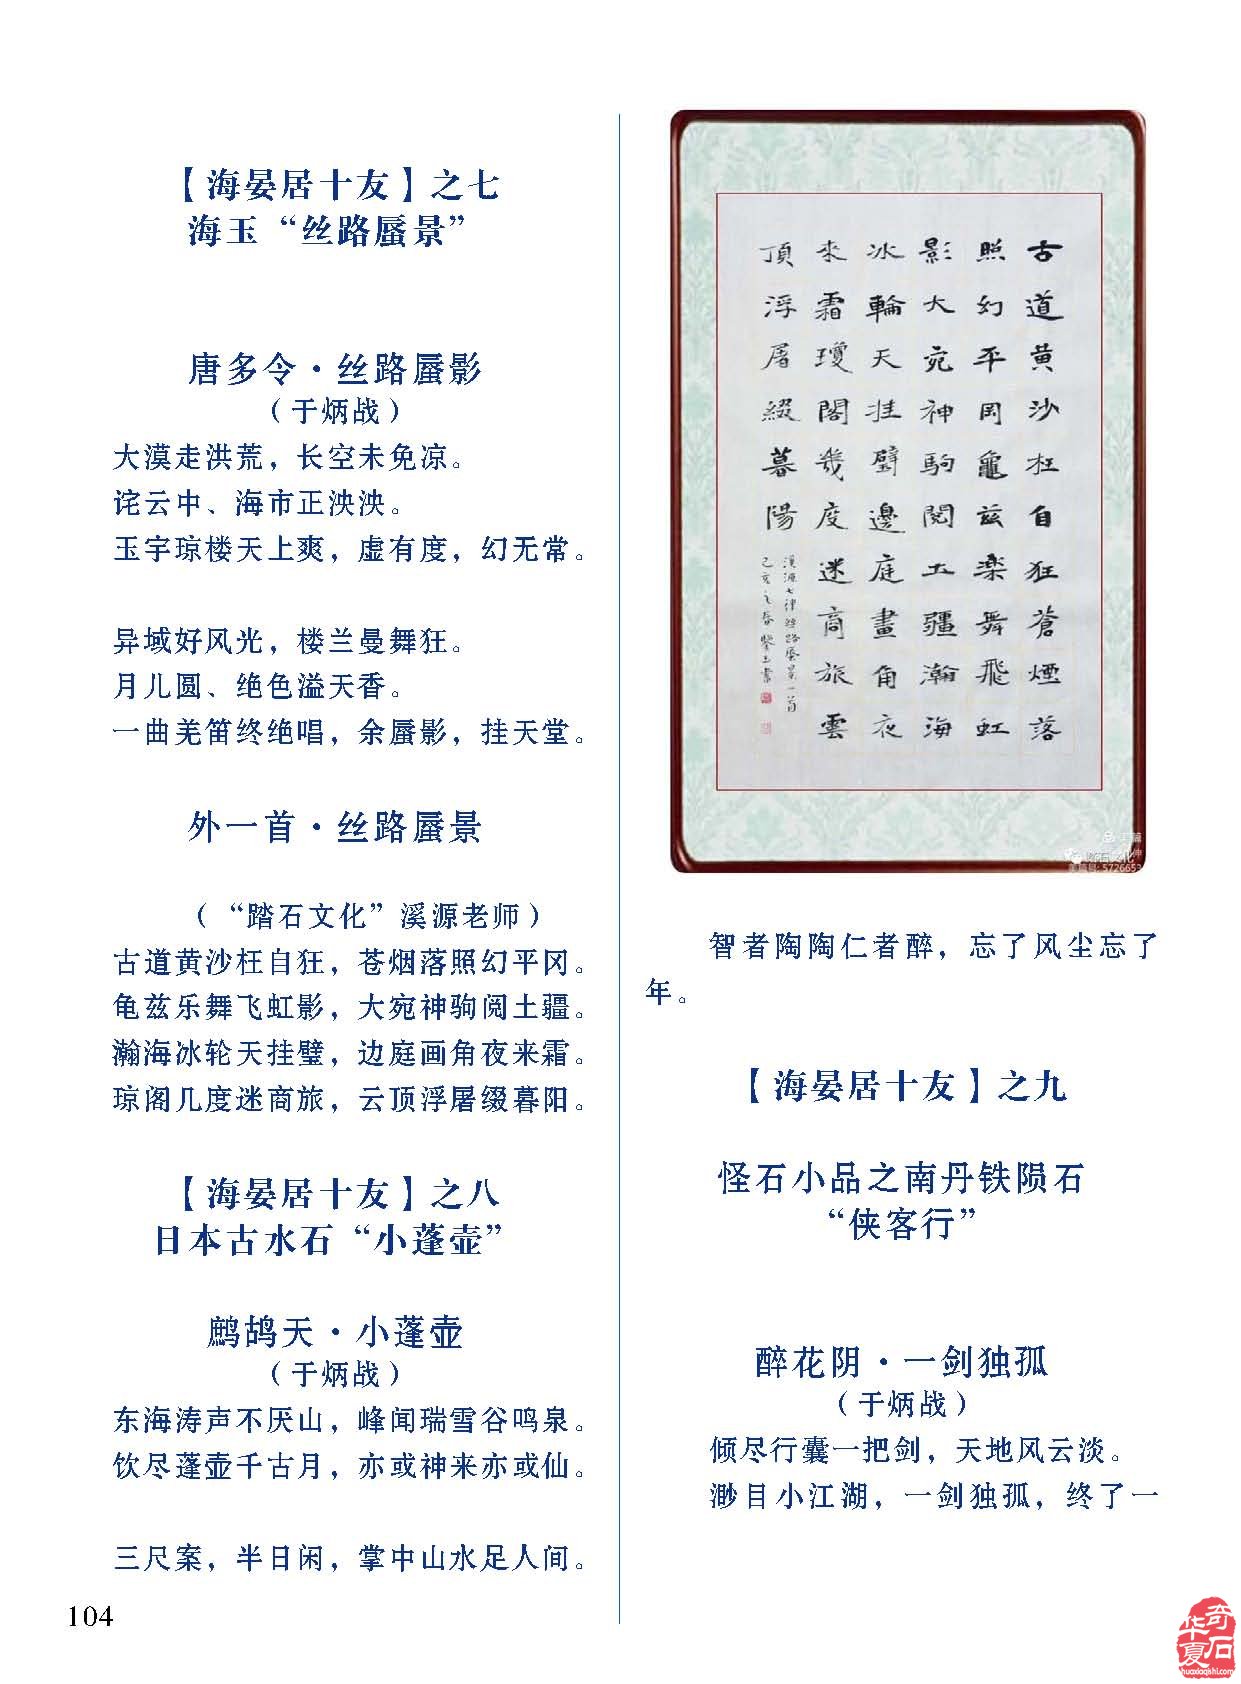 【海晏居十友】之七
海玉“丝路蜃景”
唐多令·丝路蜃影
（于炳战）
大漠走洪荒，长空未免凉。
诧云中、海市正泱泱。
玉宇琼楼天上爽，虚有度，幻无常。
异域好风光，楼兰曼舞狂。
月儿圆、绝色溢天香。
一曲羌笛终绝唱，余蜃影，挂天堂。
外一首·丝路蜃景
（“踏石文化”溪源老师）
古道黄沙枉自狂，苍烟落照幻平冈。
龟兹乐舞飞虹影，大宛神驹阅土疆。
瀚海冰轮天挂璧，边庭画角夜来霜。
琼阁几度迷商旅，云顶浮屠缀暮阳。
【海晏居十友】之八
日本古水石“小蓬壶”
鹧鸪天·小蓬壶
（于炳战）
东海涛声不厌山，峰闻瑞雪谷鸣泉。
饮尽蓬壶千古月，亦或神来亦或仙。
三尺案，半日闲，掌中山水足人间。
104
古道黄沙枉自狂蒼煙落
照幻平岡龜兹楽舞飛虹
影大宛神駒閲土疆瀚海
冰輪天挂璧邊庭畫角夜
来霜瓊閣幾度迷商旅雲
頂浮屠綴暮陽
溪源七律丝路蜃景一首
己亥之春
踏石文化
智者陶陶仁者醉，忘了风尘忘了
年。
【海晏居十友】之九
怪石小品之南丹铁陨石
“侠客行”
醉花阴·一剑独孤
（于炳战）
倾尽行囊一把剑，天地风云淡。
渺目小江湖，一剑独孤，终了一
华夏奇石
huaxiaqishi.com